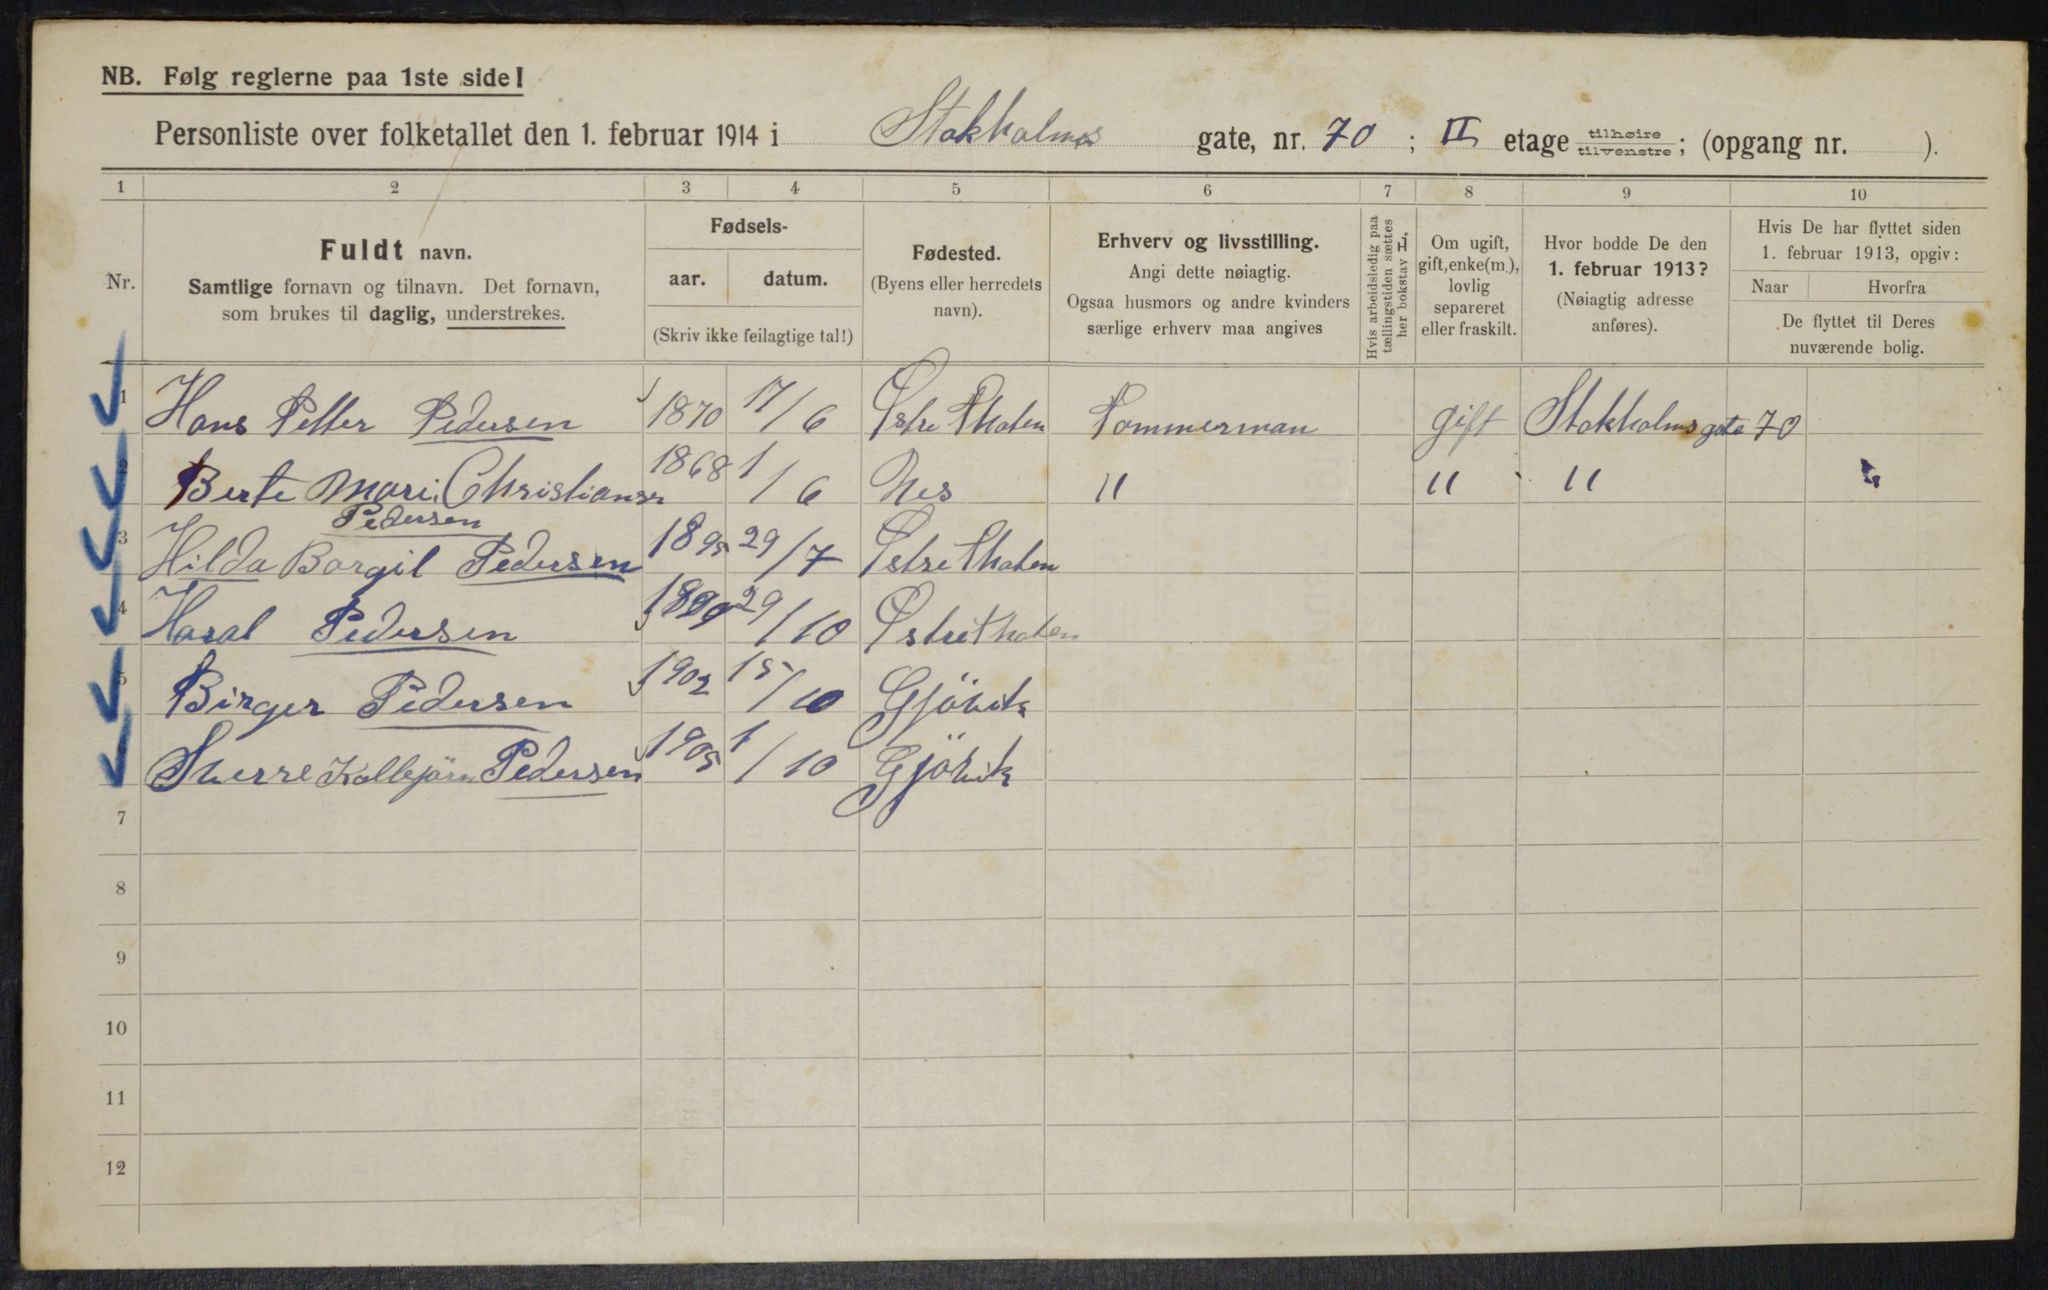 NB. Følg reglerne paa 1ste side!
Personliste over folketallet den 1. februar 1914 i Stokholms gate, nr. 70 ; II etage tilhøire tilvenstre; (opgang nr. ).
1 2 3 4 5 6 7 8 9 10
Nr.
Fuldt navn.
Samtlige fornavn og tilnavn. Det fornavn,
som brukes til daglig, understrekes.
Fødsels-
aar. datum.
(Skriv ikke feilagtige tal!)
Fødested.
(Byens eller herredets
navn).
Erhverv og livsstilling.
Angi dette nøiagtig.
Ogsaa husmors og andre kvinders
særlige erhverv maa angives
Hvis arbeidsledig paa
tællingstiden sættes
her bokstav L.
Om ugift,
gift, enke(m.),
lovlig
separeret
eller fraskilt.
Hvor bodde De den
1. februar 1913?
(Nøiagtig adresse
anføres).
Hvis De har flyttet siden
1. februar 1913, opgiv:
Naar Hvorfra
De flyttet til Deres
nuværende bolig.
1 Hans Petter Pedersen 1870 17/6 Østre Thoten Tommerman gift Stokholms gate 70
2 Berte Mari Christiansen 1868 1/6 Nes " " "
Pedersen
3 Hilda Borgil Pedersen 1895 29/7 Østre Thoten
4 Haral Pedersen 1899 29/10 Østre Thoten
5 Birger Pedersen 1902 15/10 Gjövik
6 Sverre Kolbjörn Pedersen 1905 1/10 Gjövik
7
8
9
10
11
12